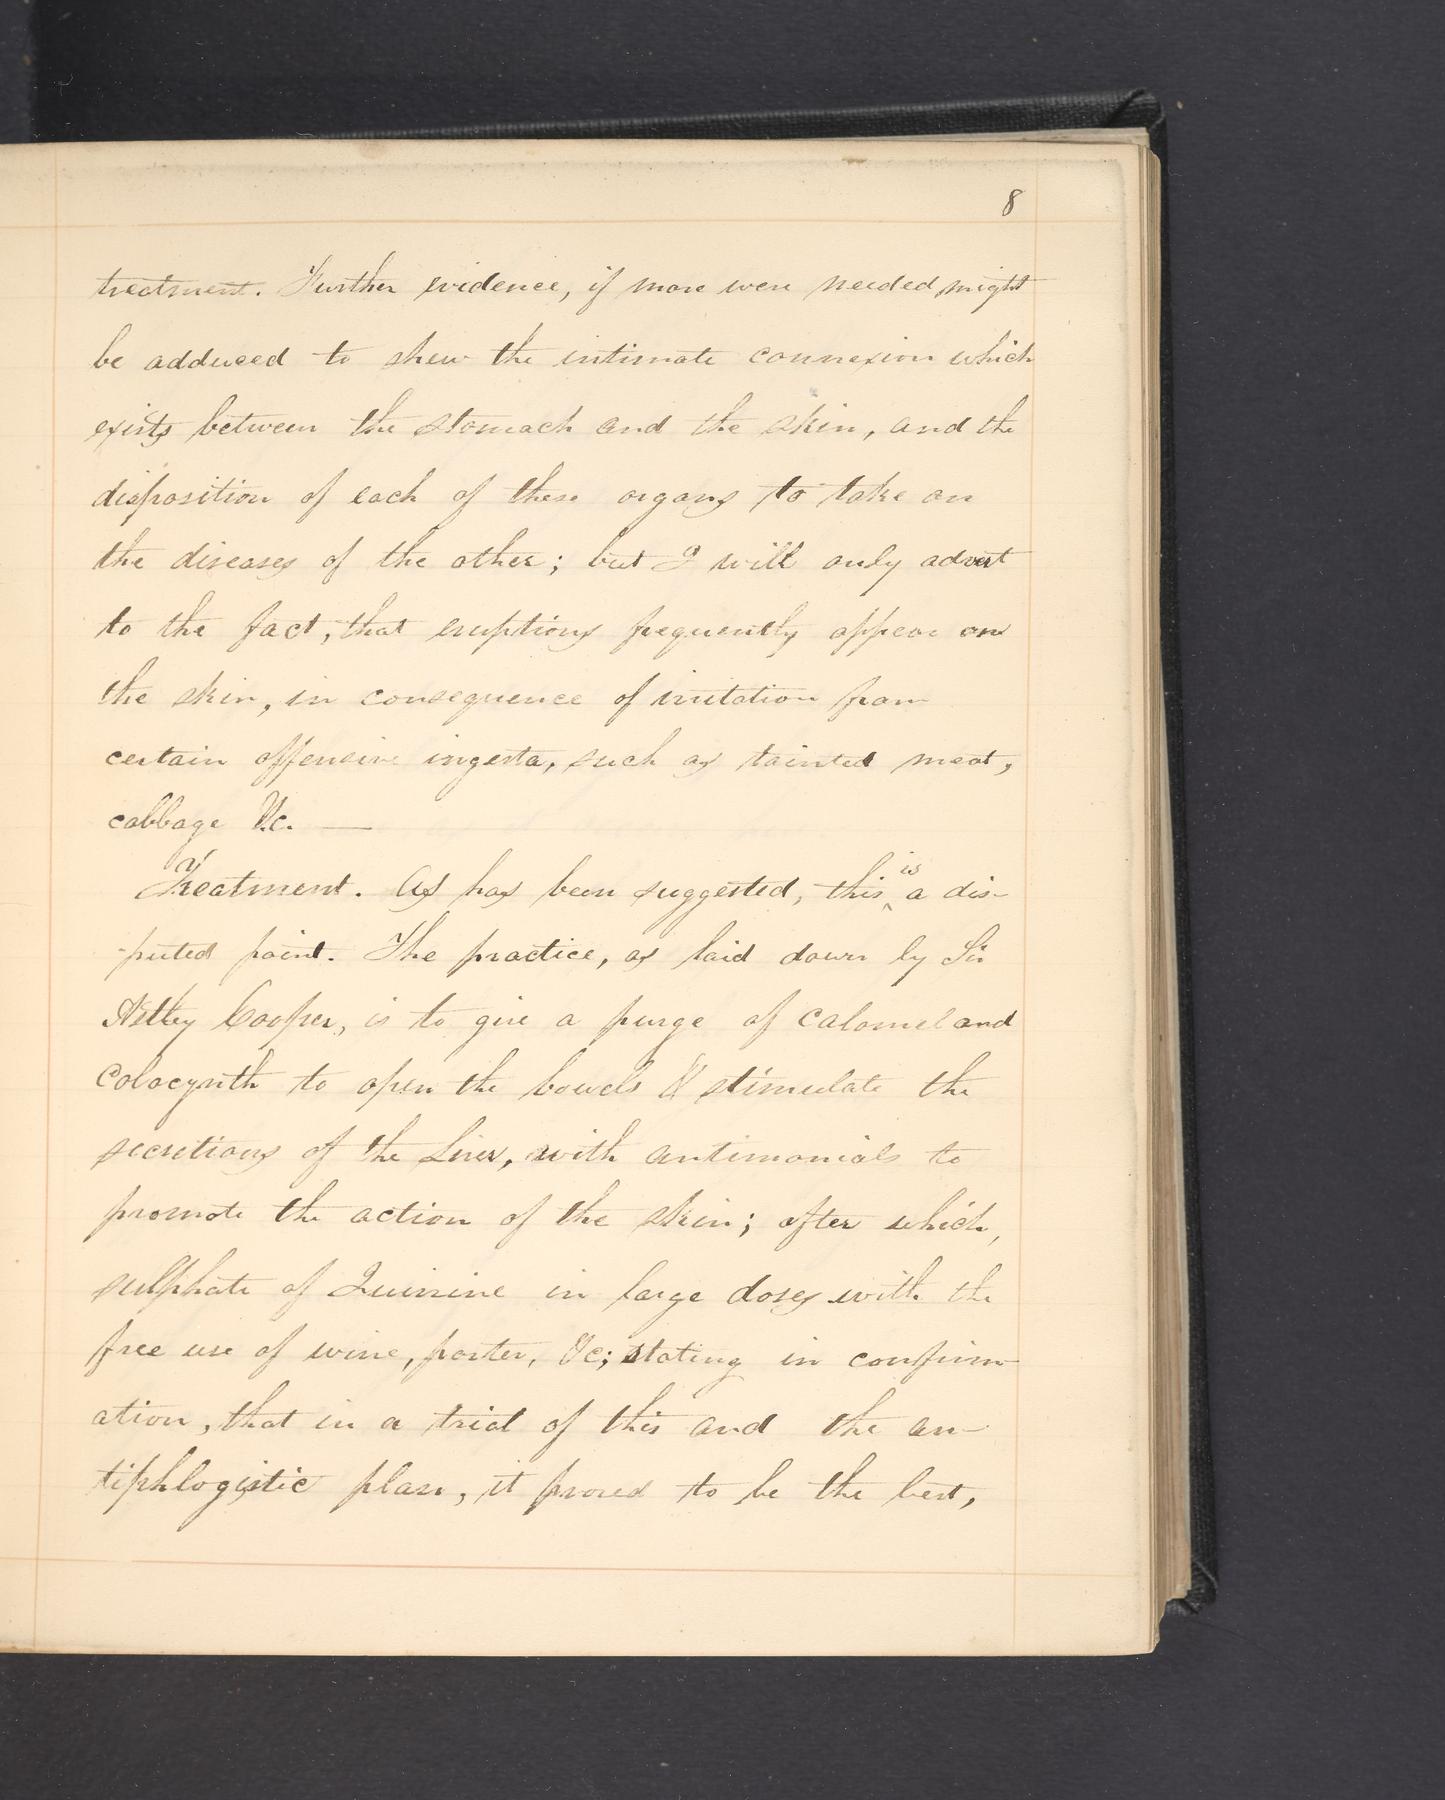 8
treatment. Further evidence, if more were needed, might
be adduced to shew the intimate connexion which
exists between the stomach and the skin, and the
disposition of each of these organs to take on
the diseases of the other; but I will only advert
to the fact, that eruptions frequently appear on
the skin, in consequence of irritation from
certain offensive ingesta, such as tainted meat,
cabbage &c. —
Treatment. As has been suggested, this is a dis-
-puted point. The practice, as laid down by Sir
Astley Cooper, is to give a purge of calomel and
colocynth to open the bowels & stimulate the
secretions of the Liver, with antimonials to
promote the action of the skin; after which,
sulphate of Quinine in large doses with the
free use of wine, porter, &c; stating in confirm-
ation, that in a trial of this and the an-
tiphlogistic plan, it proved to be the best,